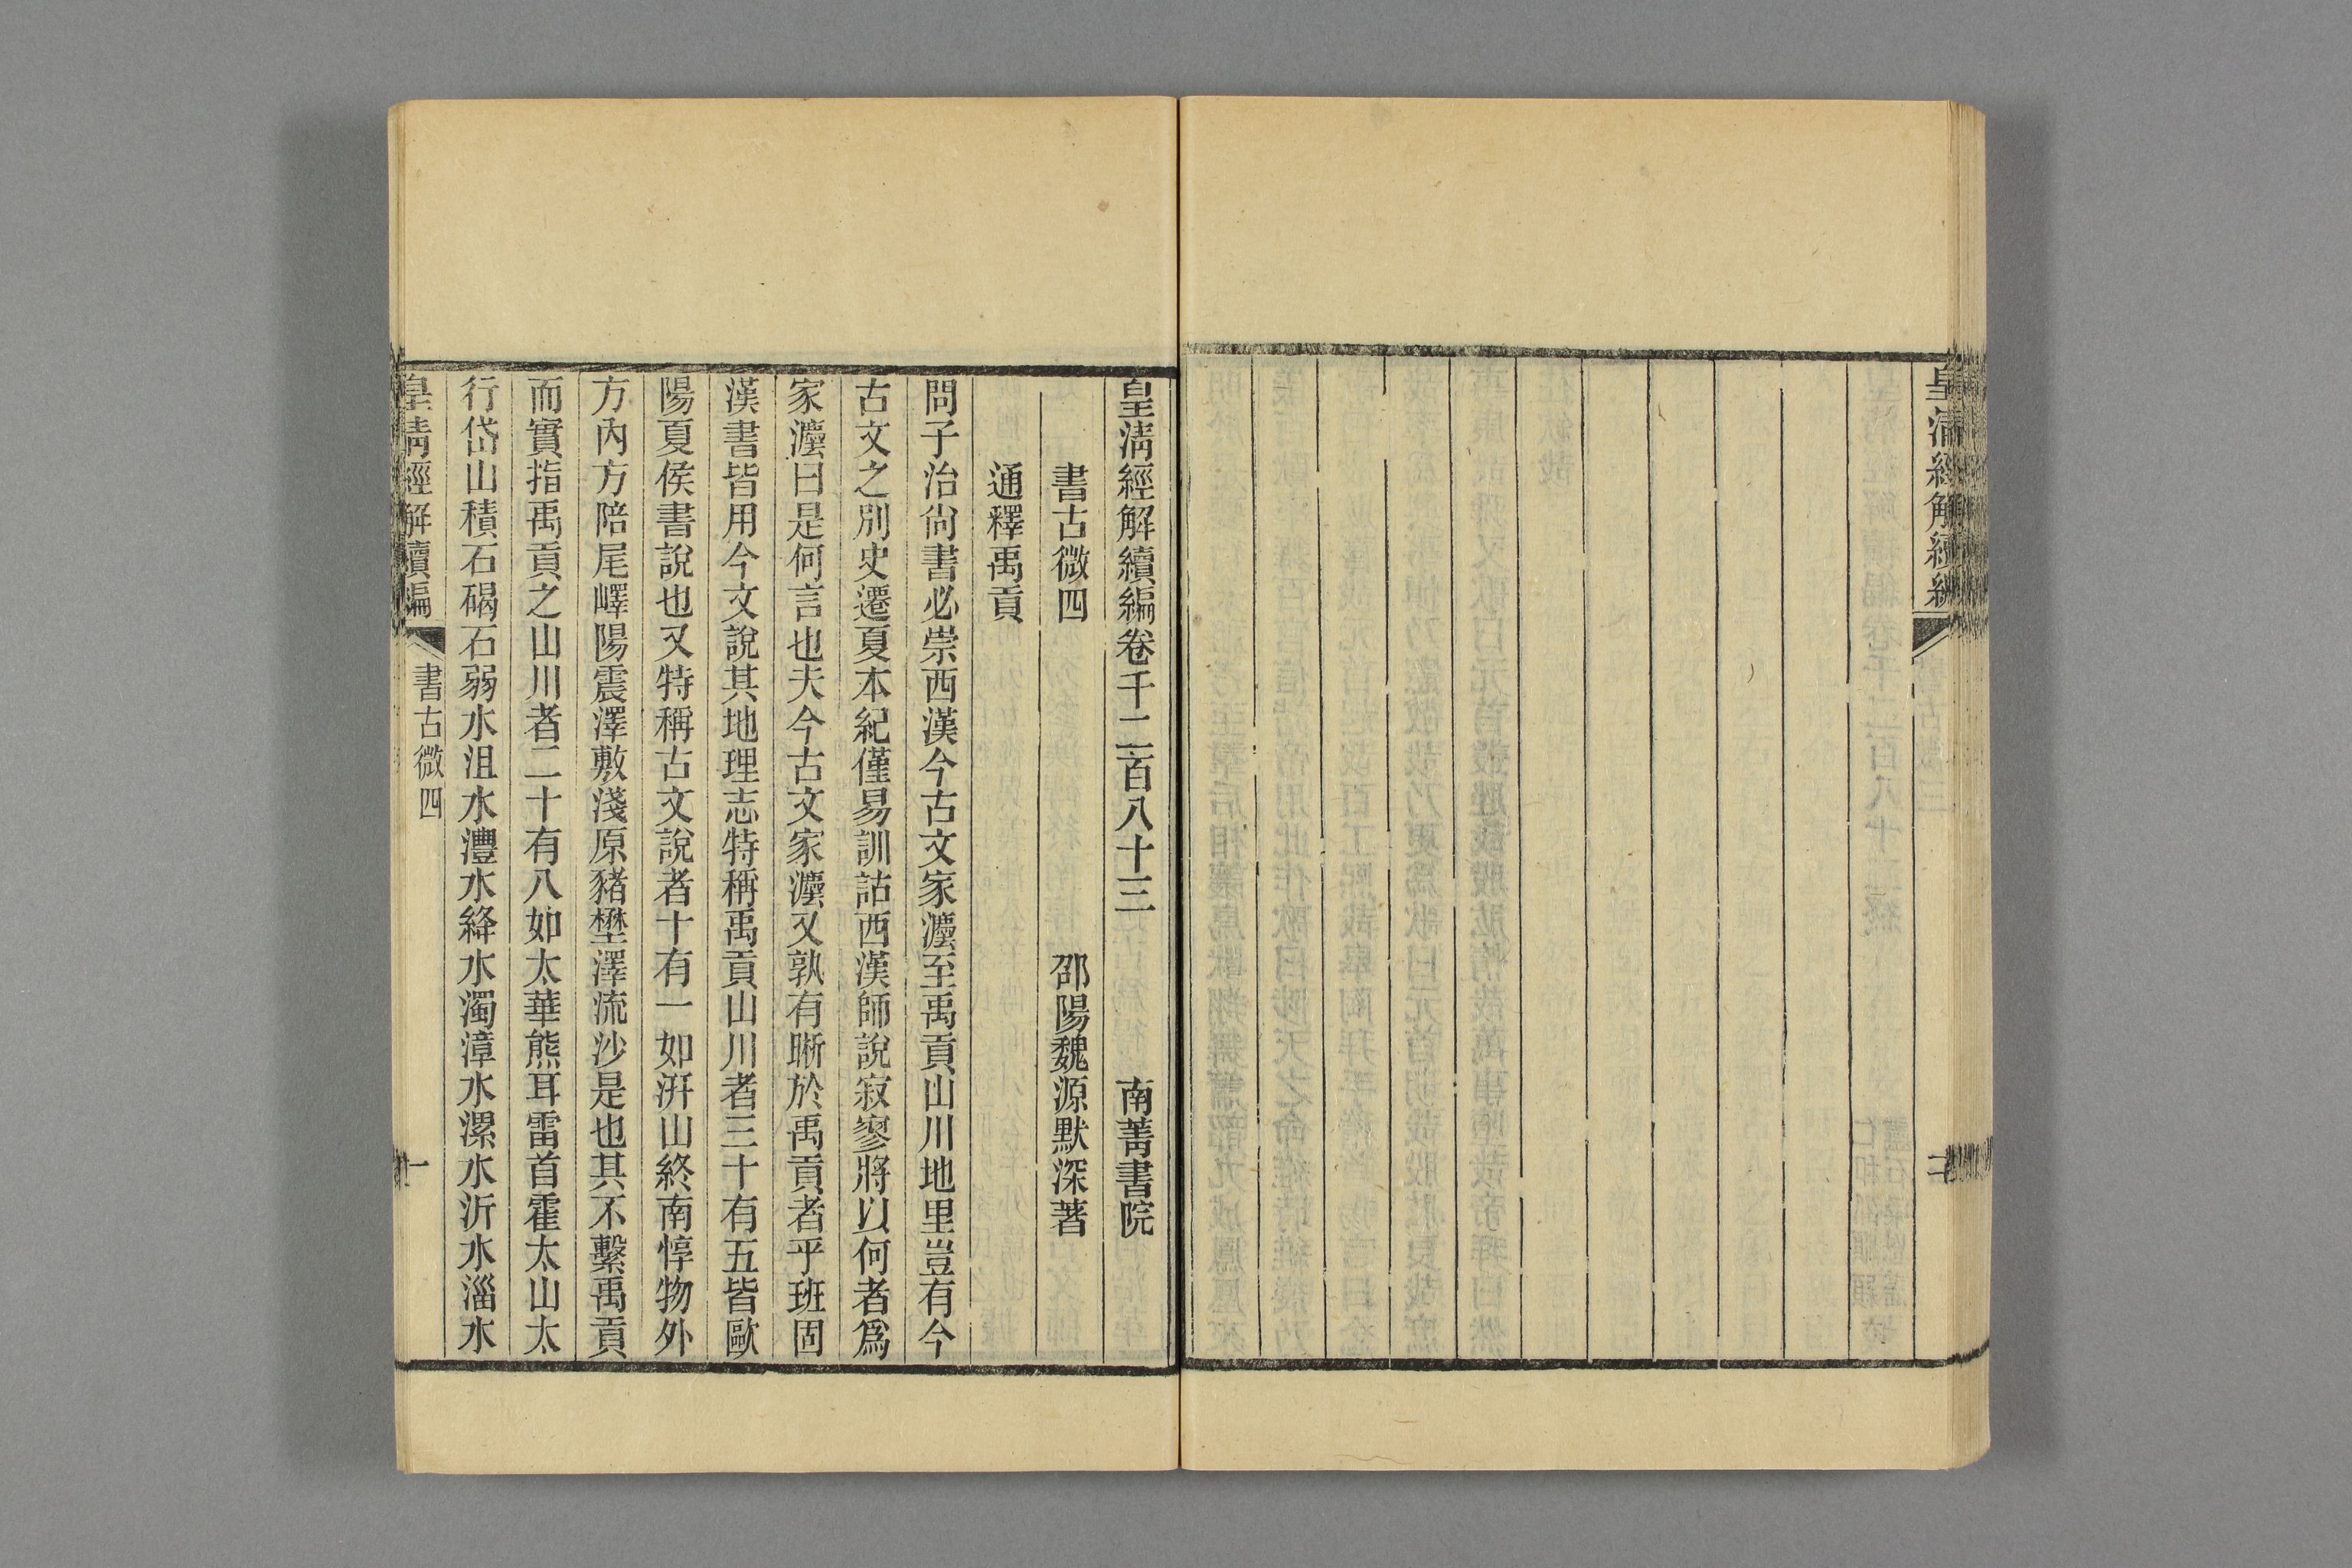 皇清經解續編
皇清經解續編卷千二百八十三 南菁書院
書古微四 邵陽魏源默深著
通釋禹貢
問子治尙書必崇西漢今古文家灋至禹貢山川地里豈有今
古文之別史遷夏本紀僅易訓詁西漢師說寂寥將以何者爲
家灋曰是何言也夫今古文家灋又孰有晰於禹貢者乎班固
漢書皆用今文說其地理志特稱禹貢山川者三十有五皆歐
陽夏侯書說也又特稱古文說者十有一如汧山終南惇物外
方內方陪尾嶧陽震澤敷淺原豬壄澤流沙是也其不繫禹貢
而實指禹貢之山川者二十有八如太華熊耳雷首霍太山太
行岱山積石碣石弱水沮水灃水絳水濁漳水漯水沂水淄水
皇清經解續編 書古微四 一